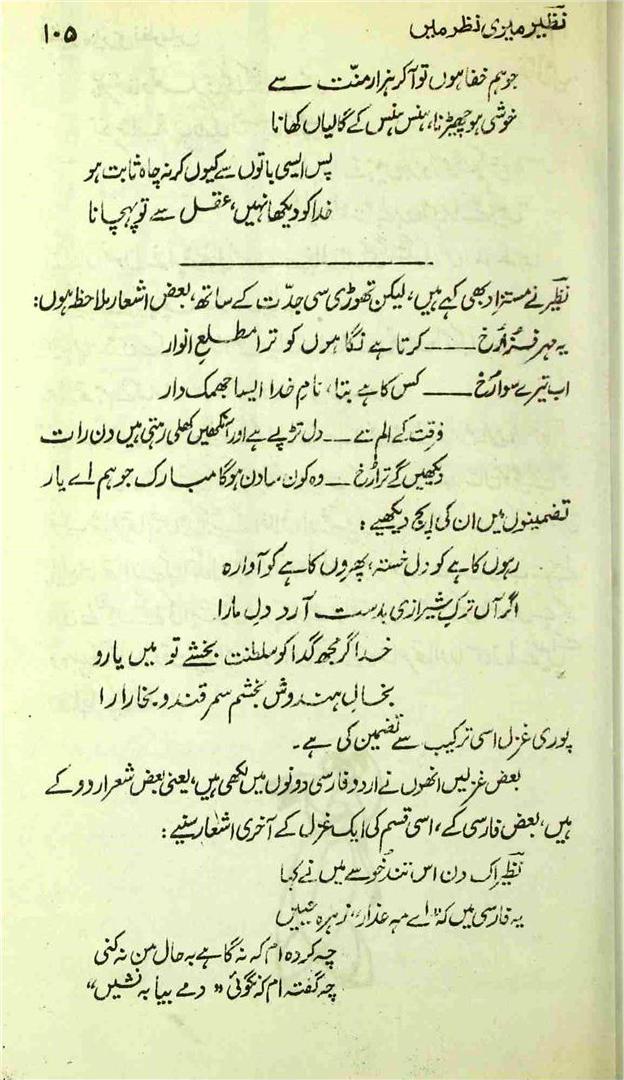 نظیر میری نظر میں ۱۰۵
جو ہم خفا ہوں تو آ کر ہزار منّت سے
خوشی ہو چھیڑنا، ہنس ہنس کے گالیاں کھانا
پس ایسی باتوں سے کیوں کر نہ چاہ ثابت ہو
خدا کو دیکھا نہیں، عقل سے تو پہچانا
نظیر نے مستزاد بھی کہے ہیں، لیکن تھوڑی سی جدّت کے ساتھ، بعض اشعار ملاحظہ ہوں:
یہ مہر فزا رُخ ــــ کرتا ہے نگاہوں کو ترا مطلعِ انوار
اب تیرے سوا رُخ ــــ کس کا ہے بتا، نامِ خدا ایسا جھمک دار
فرقت کے الم نے ــــ دل تڑپے ہے اور آنکھیں کھلی رہتی ہیں دن رات
دیکھیں گے ترا رُخ ــــ وہ کون سا دن ہوگا مبارک جو ہم اے یار
تضمینوں میں ان کی اپچ دیکھیے:
رہوں کاہے کو دل خستہ، پھروں کاہے کو آوارہ
اگر آں ترکِ شیرازی بدست آرد دلِ مارا
خدا گر مجھ گدا کو سلطنت بخشے تو میں یارو
بخالِ ہندوش بخشم سمرقند و بخارا را
پوری غزل اسی ترکیب سے تضمین کی ہے۔
بعض غزلیں انھوں نے اردو فارسی دونوں میں لکھی ہیں، یعنی بعض شعر اردو کے
ہیں، بعض فارسی کے، اسی قسم کی ایک غزل کے آخری اشعار سنیے:
نظیر اک دن اس تند خو سے میں نے کہا
یہ فارسی میں کہ "اے مہ عذار، زہرہ جبیں
چہ کردہ ام کہ نگاہے بہ حال من نہ کنی
چہ گفتہ ام کہ نگوئی "دمے بیا بہ نشیں"